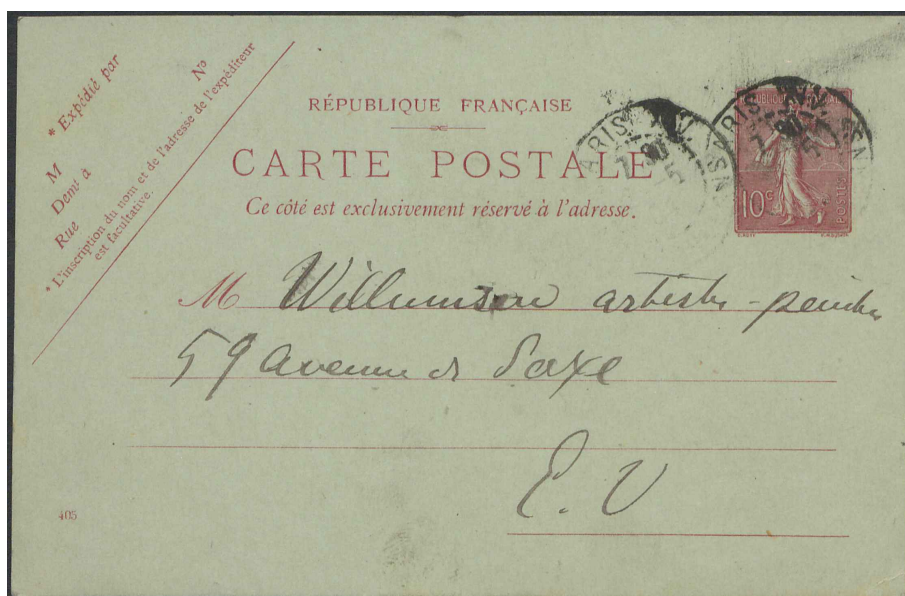 * Expédié par
M
N°
Demt à
Rue
* L'inscription du nom et de l'adresse de l'expéditeur
est facultative.
RÉPUBLIQUE FRANÇAISE
CARTE POSTALE
Ce côté est exclusivement réservé à l'adresse.
10c
POSTES
M Willumsen artiste-peintre
59 avenue de Saxe
E. V
405